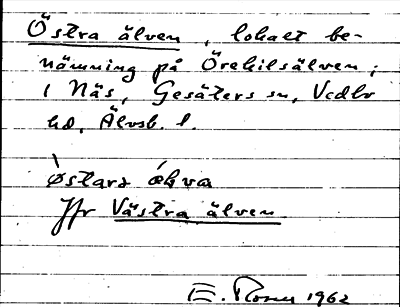 Östra älven, lokal be-
nämning på Örekilsälven;
i Näs, Gesäters sn, Vedbo
hd, Älvsb. l.
østarə
Jfr Västra älven
E. Rosen 1962